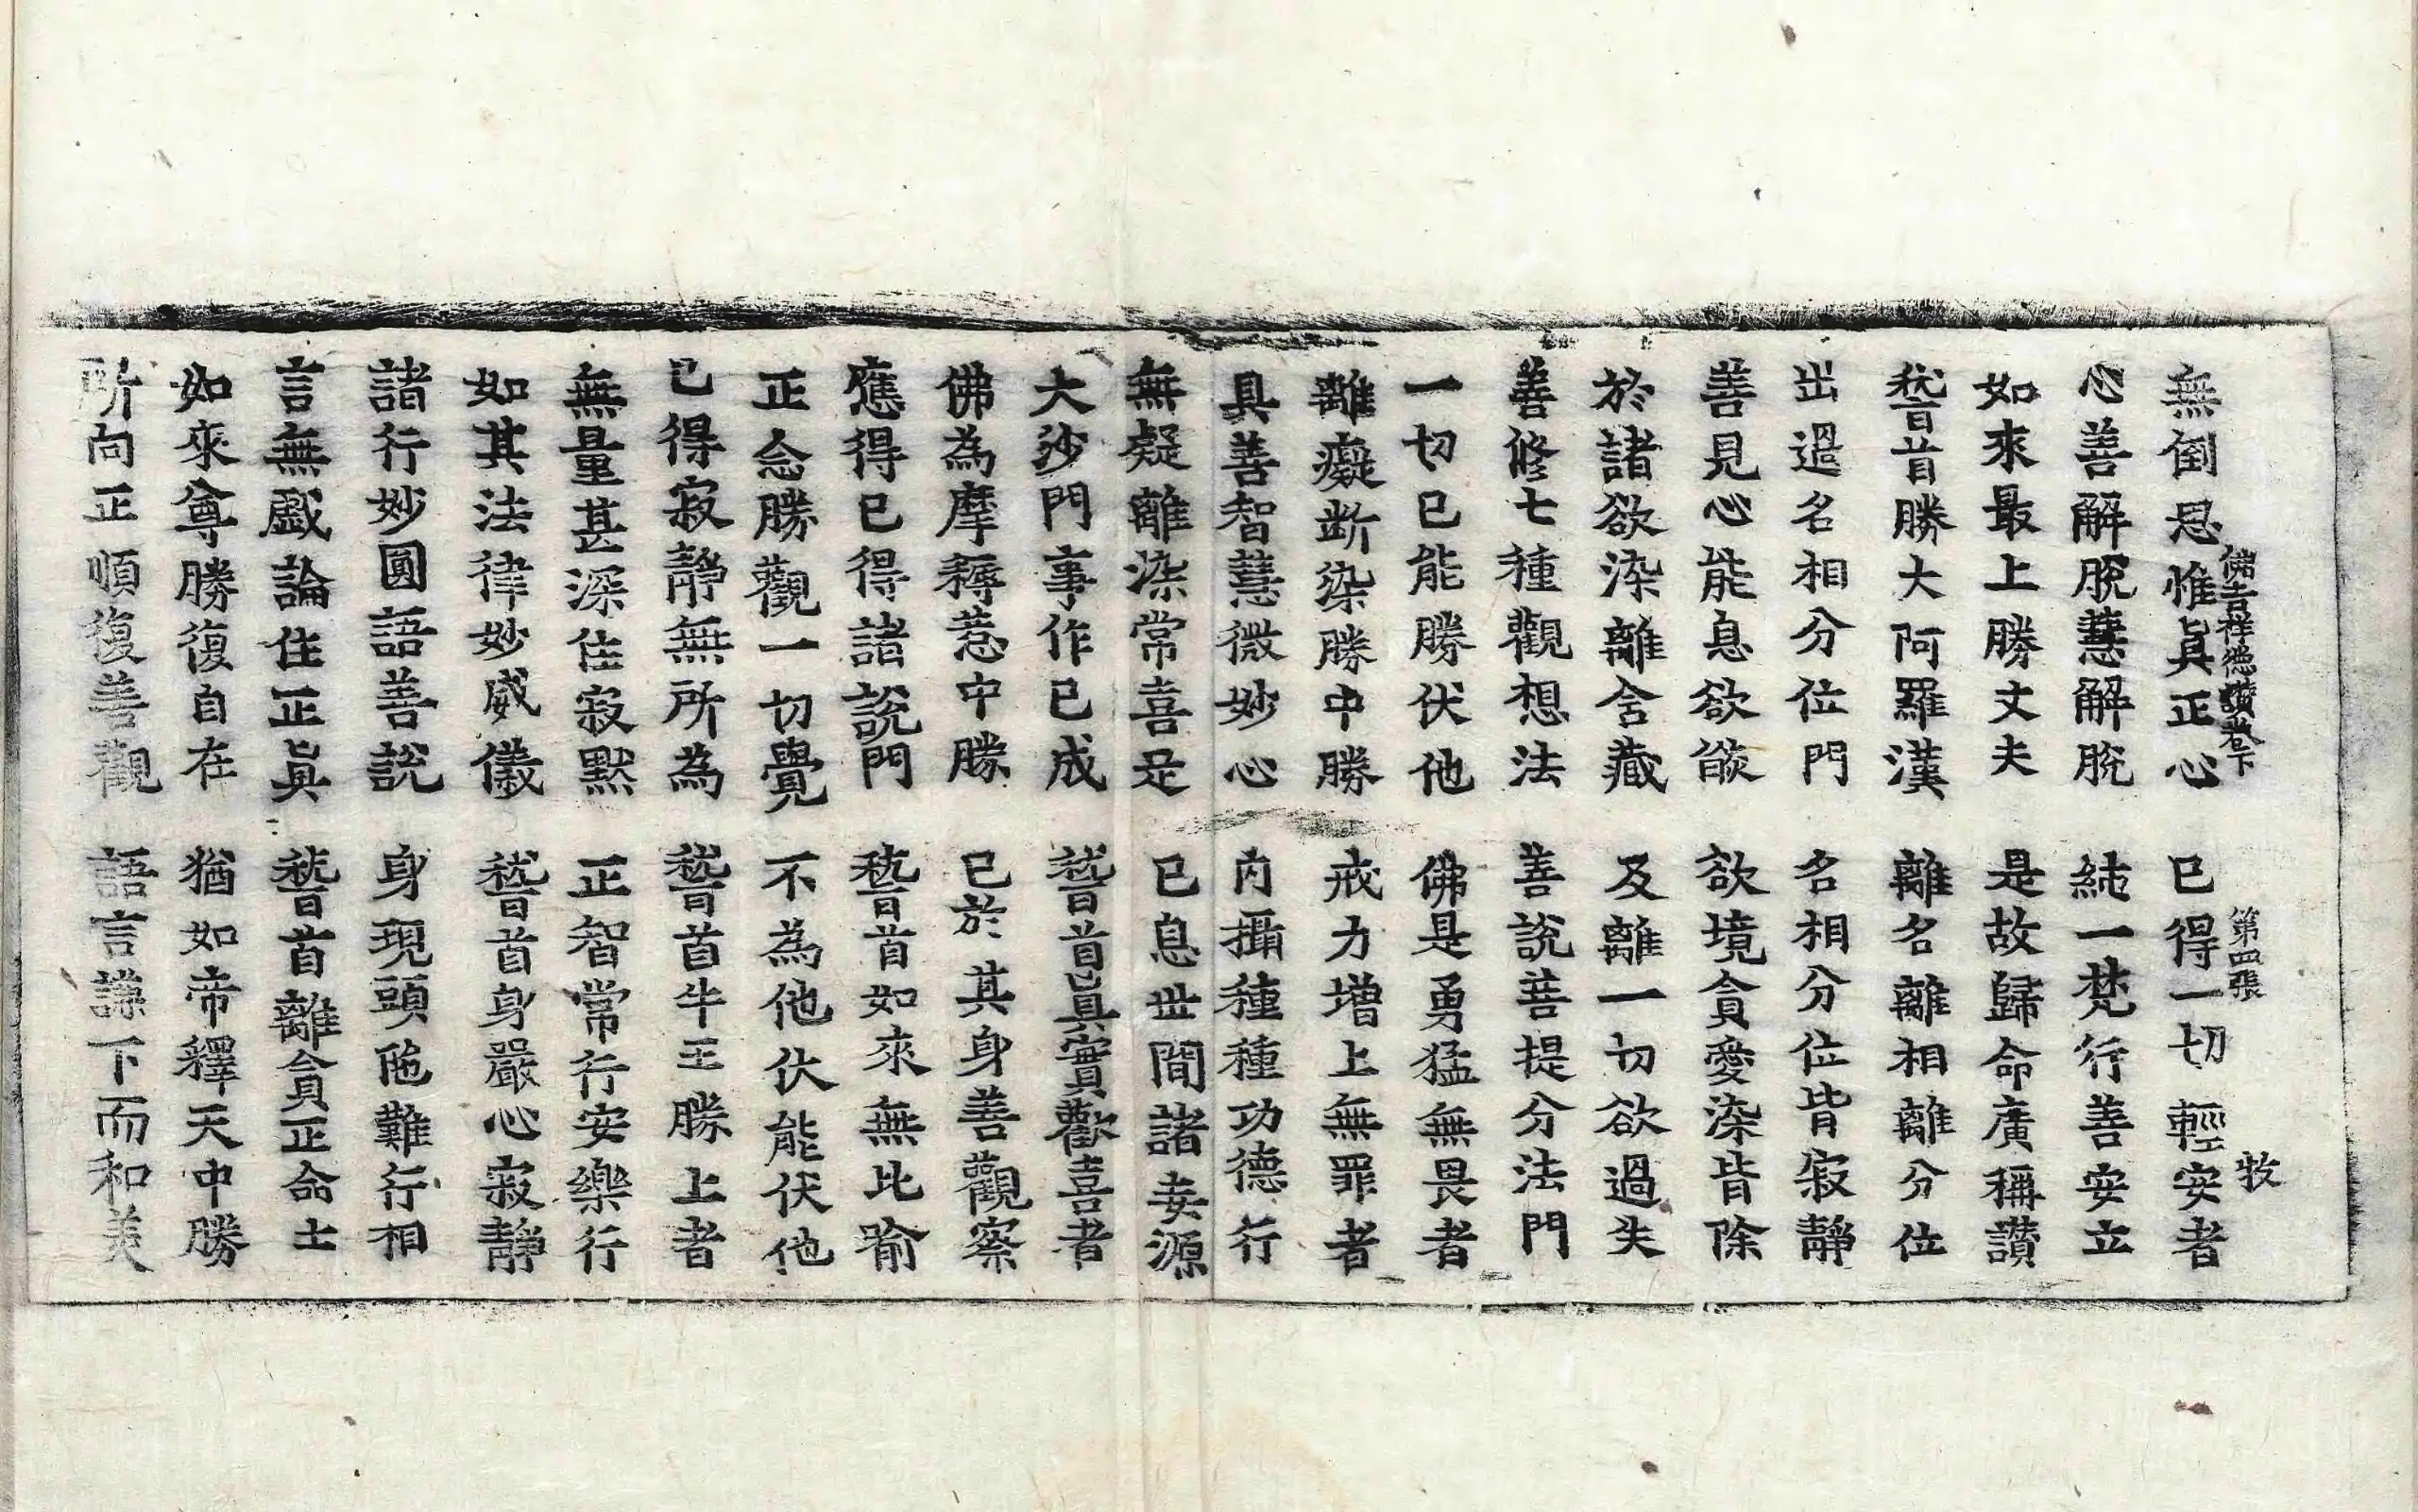 佛吉祥德讚卷下 第四張 牧
無倒思惟眞正心 已得一切輕安者
心善解脫慧解脫 純一梵行善安立
如來最上勝丈夫 是故歸命廣稱讚
嵇首勝大阿羅漢 離名離相離分位
出過名相分位門 名相分位皆寂靜
善見心能息欲𦦨 欲境貪愛染皆除
於諸欲染離舍藏 及離一切欲過失
善修七種觀想法 善說菩提分法門
一切已能勝伏他 佛是勇猛無畏者
離癡断染勝中勝 戒力增上無罪者
具善智慧微妙心 內攝種種功德行
無疑離染常喜足 已息世間諸妄源
大沙門事作已成 嵇首眞實歡喜者
佛為摩耨惹中勝 已於其身善觀察
應得已得諸說門 嵇首如來無比喻
正念勝觀一切覺 不為他伏能伏他
已得寂靜無所為 嵇首牛王勝上者
無量甚深住寂默 正智常行安樂行
如其法律妙威儀 嵇首身嚴心寂靜
諸行妙圓語善說 身現頭陁難行相
言無戲論住正眞 嵇首離貪正命士
如來尊勝復自在 猶如帝釋天中勝
所向正順復善觀 語言謙下而和美